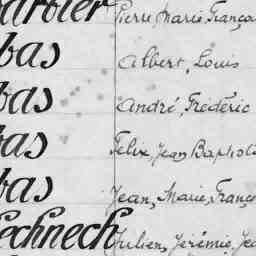 arbier Pierre Marie França
bas Albert, Louis
bas André, Frédéric
bas Felix, Jean Baptist
bas Jean, Marie, Franç
echnech Julien, Jérémie, Jea